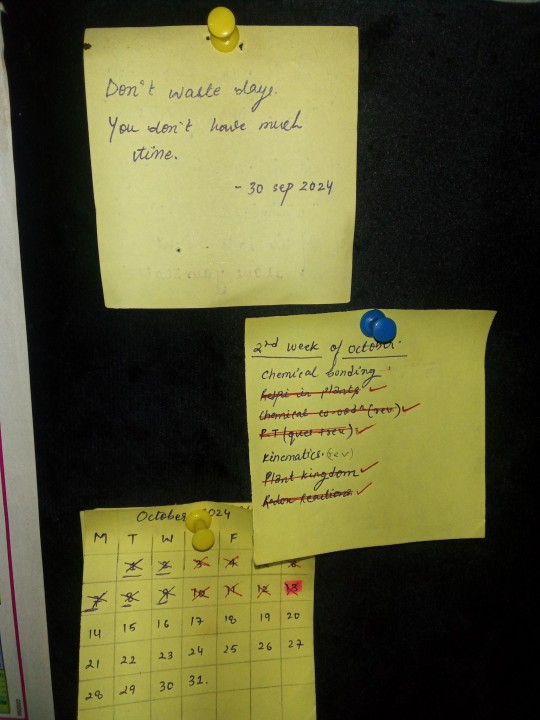 Don't waste days.
You don't have much
time.
- 30 sep 2024
2nd week of october.
Chemical bonding
Respi in plants
Chemical co-ordn (rev)
P.T (ques + rev)
Kinematics. (rev)
Plant kingdom
Redox Reactions
October 2024
M T W F
1 2 3 4 6
7 8 9 10 11 12 13
14 15 16 17 18 19 20
21 22 23 24 25 26 27
28 29 30 31.